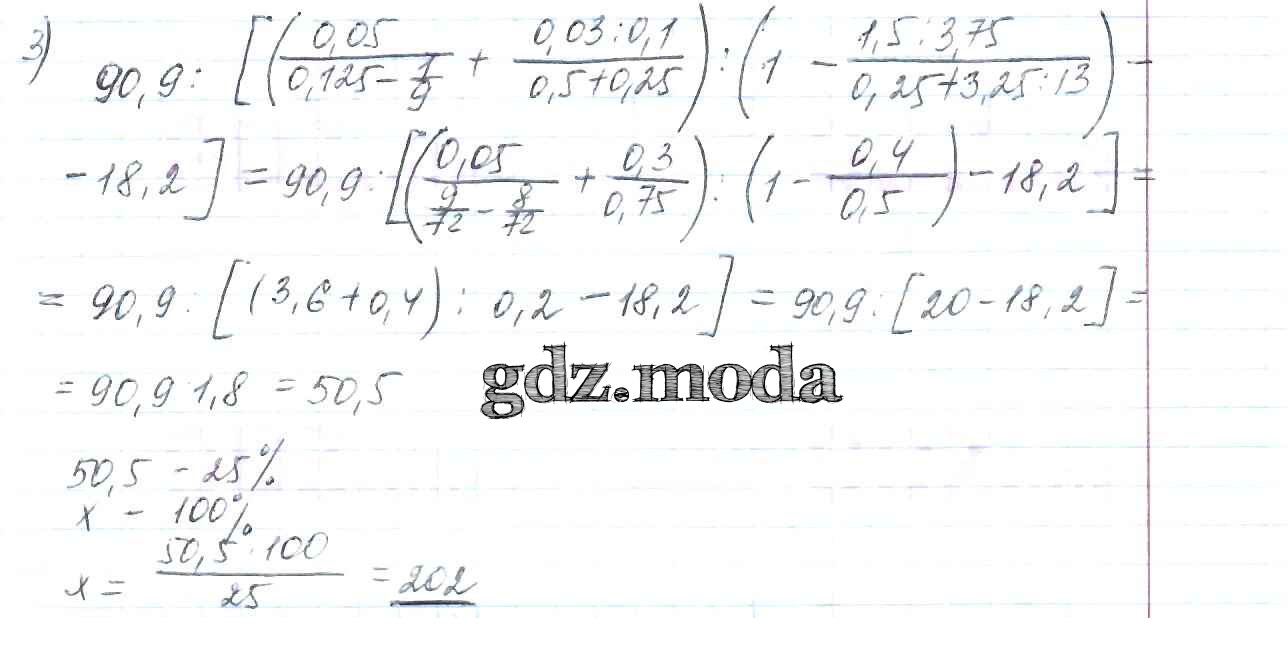 3) 90,9 : [(0,05 / (0,125 − 1/9) + 0,03:0,1 / (0,5+0,25)) : (1 − 1,5:3,75 / (0,25+3,25:13)) −
− 18,2] = 90,9 : [(0,05 / (9/72 − 8/72) + 0,3 / 0,75) : (1 − 0,4 / 0,5) − 18,2] =
= 90,9 : [(3,6 + 0,4) : 0,2 − 18,2] = 90,9 : [20 − 18,2] =
= 90,9 : 1,8 = 50,5
gdz.moda
50,5 − 25%
x − 100%
x = 50,5 · 100 / 25 = 202